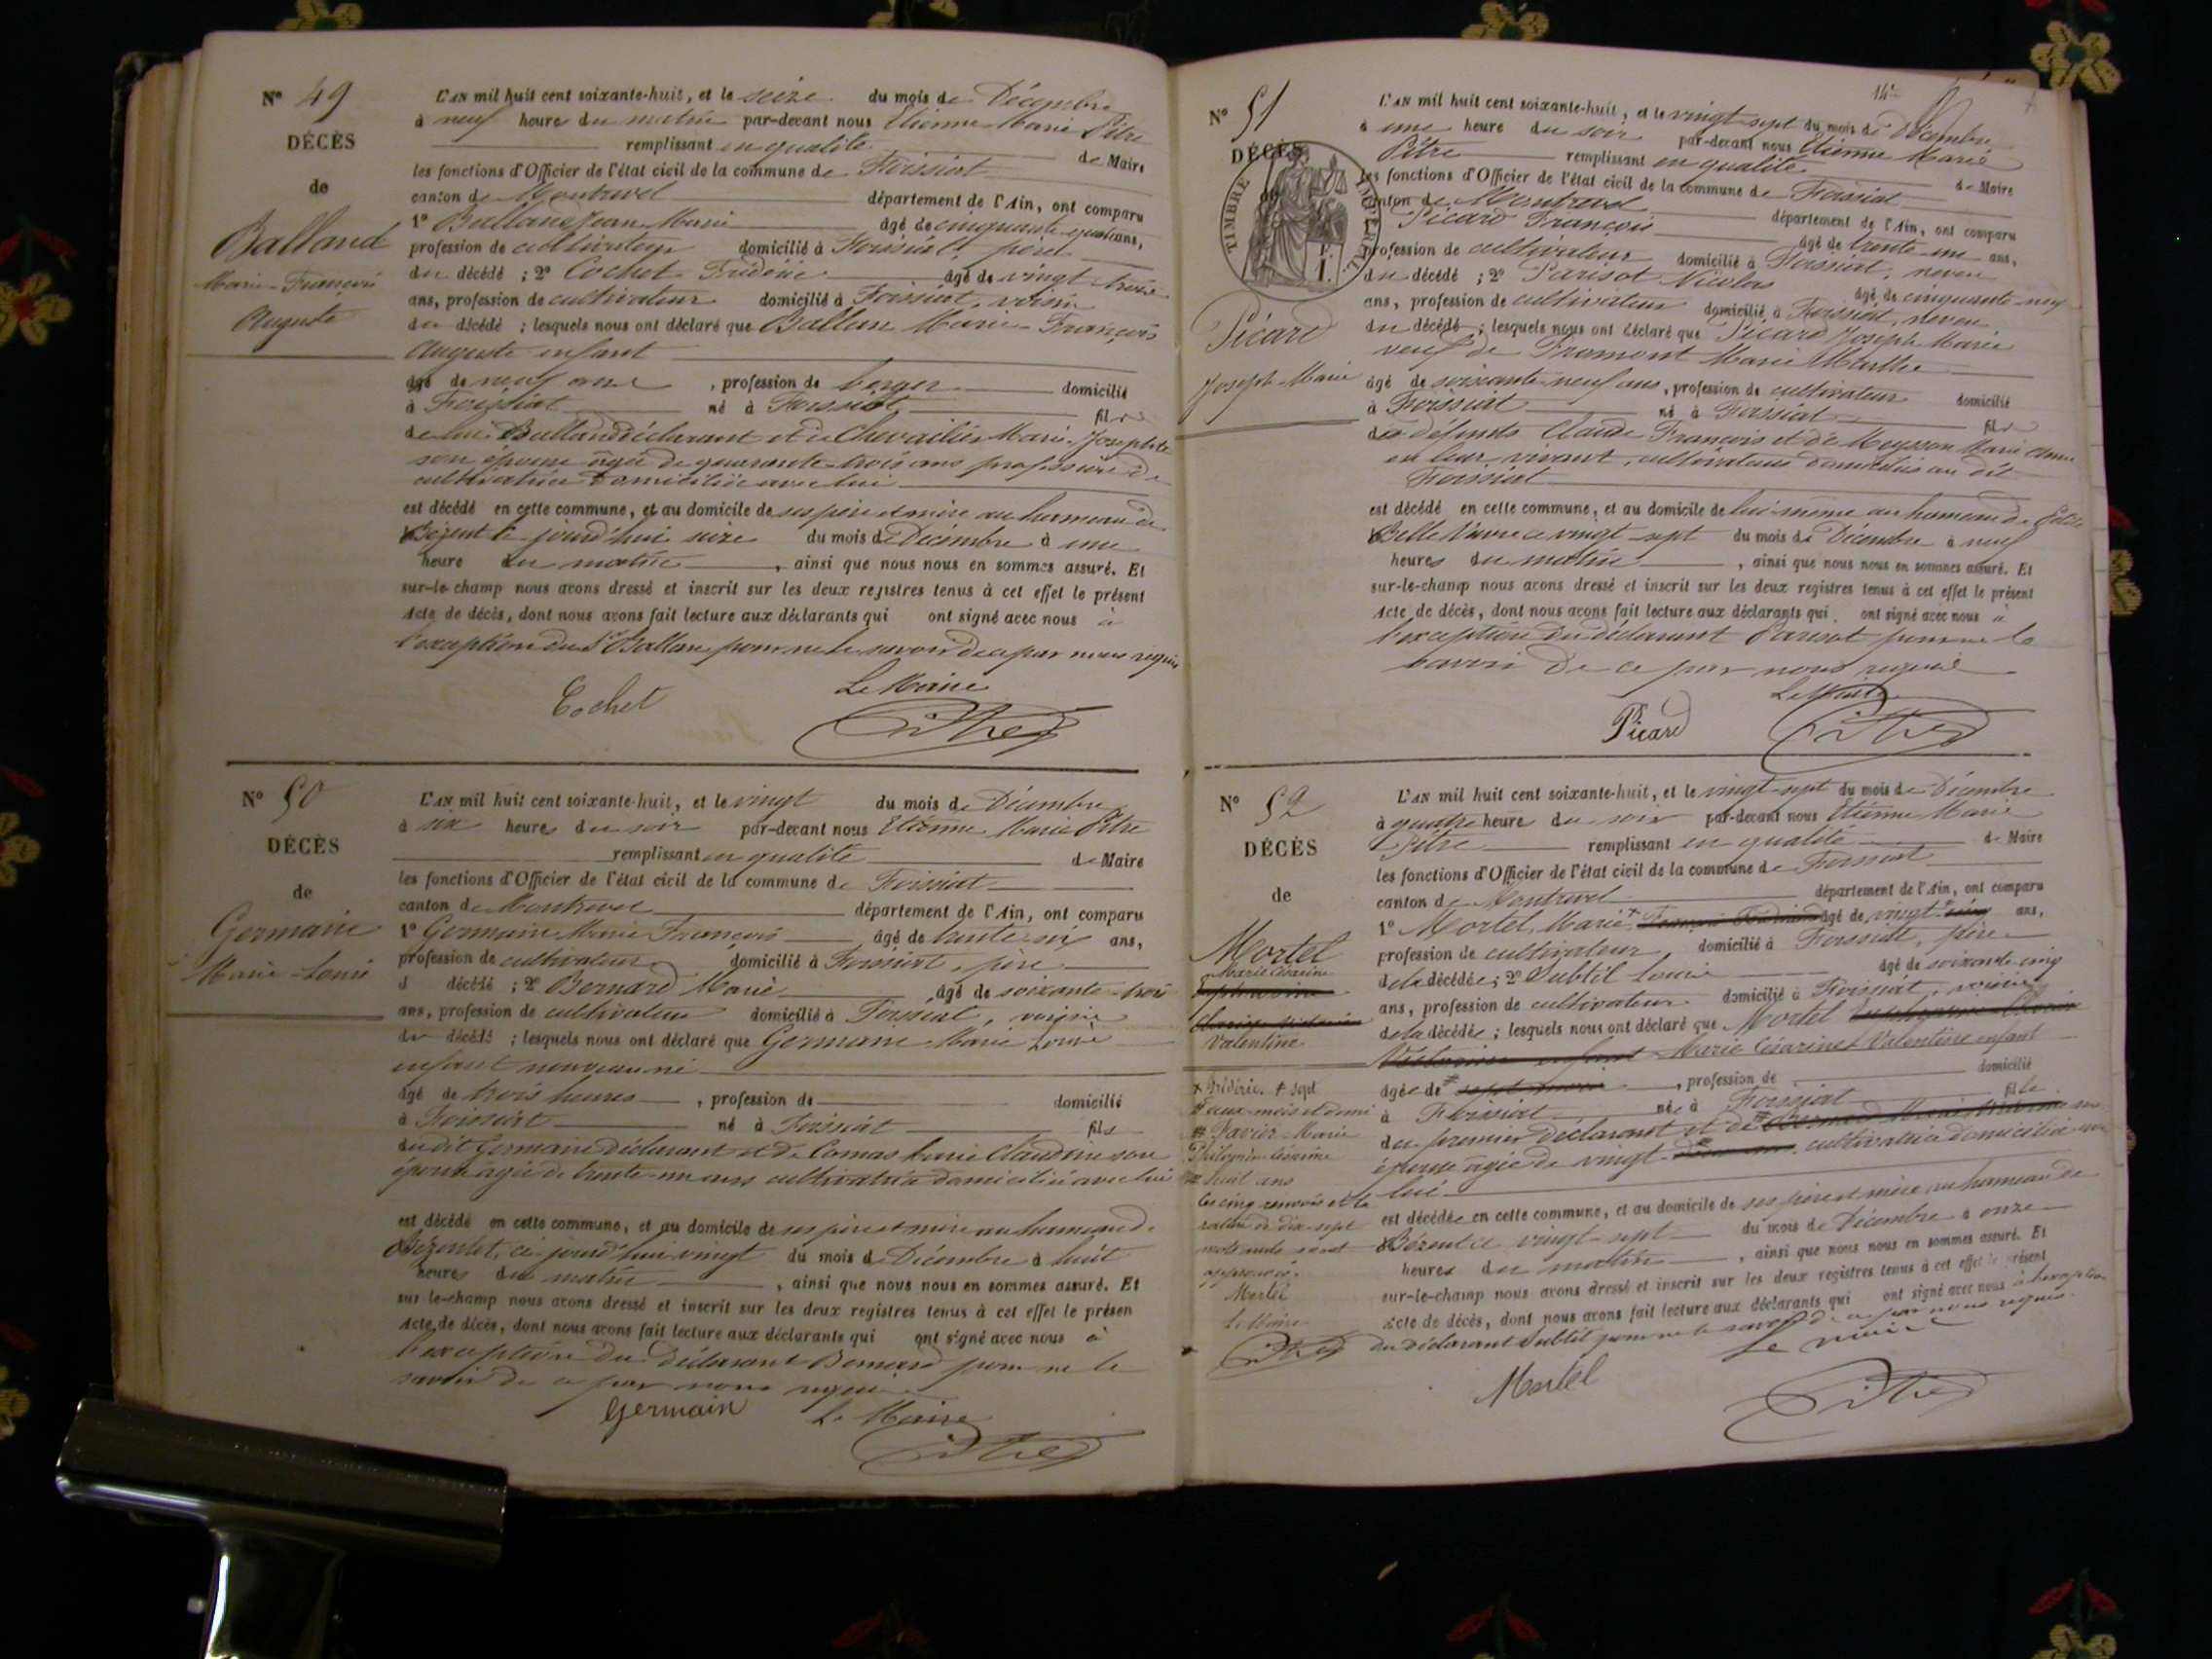 N° 49
DÉCÈS
de
Balland
Marie-François
Auguste
L'AN mil huit cent soixante-huit, et le seize du mois de Décembre
à neuf heures du matin par-devant nous Etienne Marie Pitre
remplissant en qualité de Maire
les fonctions d'Officier de l'état civil de la commune de Foissiat
canton de Montrevel département de l'Ain, ont comparu
1° Balland Jean Marie âgé de cinquante quatre ans,
profession de cultivateur domicilié à Foissiat, père
du décédé ; 2° Cochet Frédéric âgé de vingt trois
ans, profession de cultivateur domicilié à Foissiat, voisin
du décédé ; lesquels nous ont déclaré que Ballan Marie-François
Auguste enfant
âgé de neuf ans , profession de berger domicilié
à Foissiat né à Foissiat fils
de lui Balland déclarant et de Chevailier Marie-Josephte
son épouse âgée de quarante trois ans profession de
cultivatrice domiciliée avec lui
est décédé en cette commune, et au domicile de ses père et mère au hameau de
Bézent ce jourd'hui seize du mois de Décembre à une
heure du matin , ainsi que nous nous en sommes assuré. Et
sur-le-champ nous avons dressé et inscrit sur les deux registres tenus à cet effet le présent
Acte de décès, dont nous avons fait lecture aux déclarants qui ont signé avec nous à
l'exception du S. Ballan pour ne le savoir de ce par nous requis
Cochet Le Maire
Pitre
N° 50
DÉCÈS
de
Germain
Marie-Louis
L'AN mil huit cent soixante-huit, et le vingt du mois de Décembre
à six heures du soir par-devant nous Etienne Marie Pitre
remplissant en qualité de Maire
les fonctions d'Officier de l'état civil de la commune de Foissiat
canton de Montrevel département de l'Ain, ont comparu
1° Germain Marie François âgé de trente six ans,
profession de cultivateur domicilié à Foissiat, père
d décédé ; 2° Bernard Marie âgé de soixante-trois
ans, profession de cultivateur domicilié à Foissiat, voisin
du décédé ; lesquels nous ont déclaré que Germain Marie Louis
enfant nouveau né
âgé de trois heures , profession de domicilié
à Foissiat né à Foissiat fils
du dit Germain déclarant et de Comas Marie Claudine son
épouse âgée de trente-un ans cultivatrice domiciliée avec lui
est décédé en cette commune, et au domicile de ses père et mère au hameau de
ce jourd'hui vingt du mois de Décembre à huit
heures du matin , ainsi que nous nous en sommes assuré. Et
sur-le-champ nous avons dressé et inscrit sur les deux registres tenus à cet effet le présen
Acte de décès, dont nous avons fait lecture aux déclarants qui ont signé avec nous à
l'exception du déclarant Bernard pour ne le
savoir de ce par nous requis
Germain Le Maire
Pitre
14
N° 51
DÉCÈS
TIMBRE IMPÉRIAL
1 F.
Picard
Joseph-Marie
L'AN mil huit cent soixante-huit, et le vingt sept du mois de Décembre
à une heure du soir par-devant nous Etienne Marie
Pitre remplissant en qualité de Maire
les fonctions d'Officier de l'état civil de la commune de Foissiat
canton de Montrevel département de l'Ain, ont comparu
Picard François âgé de trente-un ans,
profession de cultivateur domicilié à Foissiat, neveu
du décédé ; 2° Parisot Nicolas âgé de cinquante-neuf
ans, profession de cultivateur domicilié à Foissiat, neveu
du décédé ; lesquels nous ont déclaré que Picard Joseph Marie
veuf de Fromont Marie Marthe
âgé de soixante-neuf ans, profession de cultivateur domicilié
à Foissiat né à Foissiat fils
des défunts Claude François et de Meysson Marie Anne
en leur vivant, cultivateurs domiciliés au dit
Foissiat
est décédé en cette commune, et au domicile de lui-même au hameau de
Belle Vavre ce vingt-sept du mois de Décembre à neuf
heures du matin , ainsi que nous nous en sommes assuré. Et
sur-le-champ nous avons dressé et inscrit sur les deux registres tenus à cet effet le présent
Acte de décès, dont nous avons fait lecture aux déclarants qui ont signé avec nous à
l'exception du déclarant Parisot pour ne le
savoir de ce par nous requis
Le Maire
Picard Pitre
N° 52
DÉCÈS
de
Mortel
Marie Césarine
Valentine
L'AN mil huit cent soixante-huit, et le vingt-sept du mois de Décembre
à quatre heures du soir par-devant nous Etienne Marie
Pitre remplissant en qualité de Maire
les fonctions d'Officier de l'état civil de la commune de Foissiat
canton de Montrevel département de l'Ain, ont comparu
1° Mortel Marie âgé de vingt ans,
profession de cultivateur domicilié à Foissiat, père
de la décédée ; 2° Subtil Louis âgé de soixante cinq
ans, profession de cultivateur domicilié à Foissiat, voisin
de la décédée ; lesquels nous ont déclaré que Mortel
Marie Césarine Valentine enfant
âgée de , profession de domicilié
à Foissiat né à Foissiat fille
du premier déclarant et de
épouse âgée de vingt cultivatrice domiciliée
lui
est décédée en cette commune, et au domicile de ses père et mère au hameau de
Bézent ce vingt-sept du mois de Décembre à onze
heures du matin , ainsi que nous nous en sommes assuré. Et
sur-le-champ nous avons dressé et inscrit sur les deux registres tenus à cet effet le présent
Acte de décès, dont nous avons fait lecture aux déclarants qui ont signé avec nous à l'exception
du déclarant Subtil pour ne le savoir de ce par nous requis
Le maire
Mortel Pitre
x Frédéric. + sept
deux mois et demi
Xavier-Marie
huit ans
les cinq renvois et la
rature de dix-sept
mots nuls sont
approuvés.
Mortel
Le Maire
Pitre